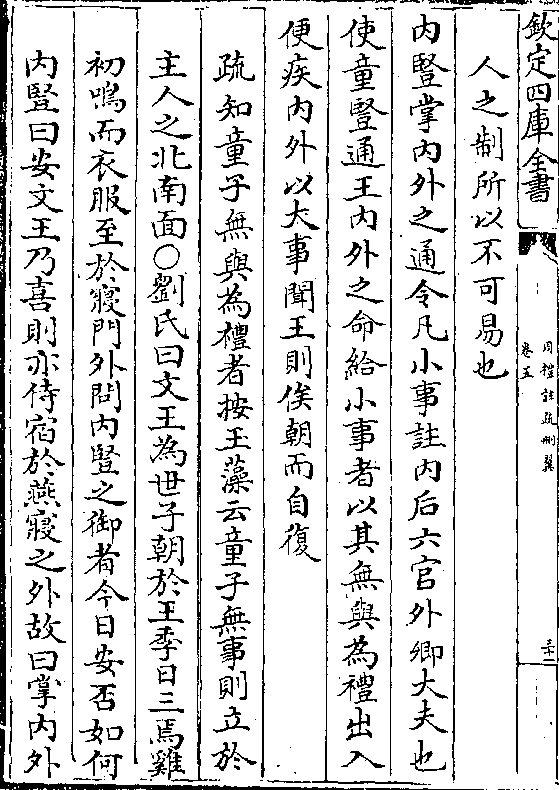 欽定四庫全書
周禮註疏刪翼
卷五
三十一
人之制所以不可易也
内豎掌内外之通令凡小事註内后六宫外卿大夫也
使童豎通王内外之命給小事者以其無與為禮出入
便疾内外以大事聞王則俟朝而自復
疏知童子無與為禮者按玉藻云童子無事則立於
主人之北南面○劉氏曰文王為世子朝於王季日三焉雞
初鳴而衣服至於寢門外問内豎之御者今日安否如何
内豎曰安文王乃喜則亦侍宿於燕寢之外故曰掌内外